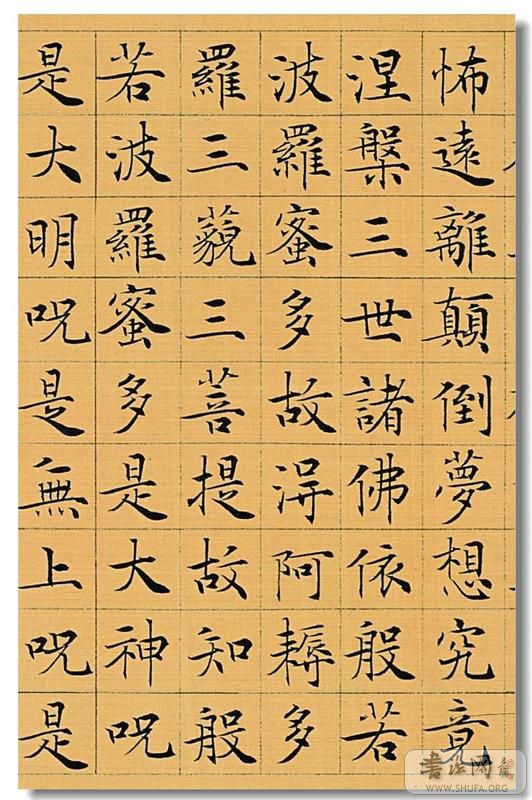 怖遠離顛倒夢想究竟
涅槃三世諸佛依般若
波羅蜜多故得阿耨多
羅三藐三菩提故知般
若波羅蜜多是大神呪
是大明呪是無上呪是
书法网
WWW.SHUFA.ORG